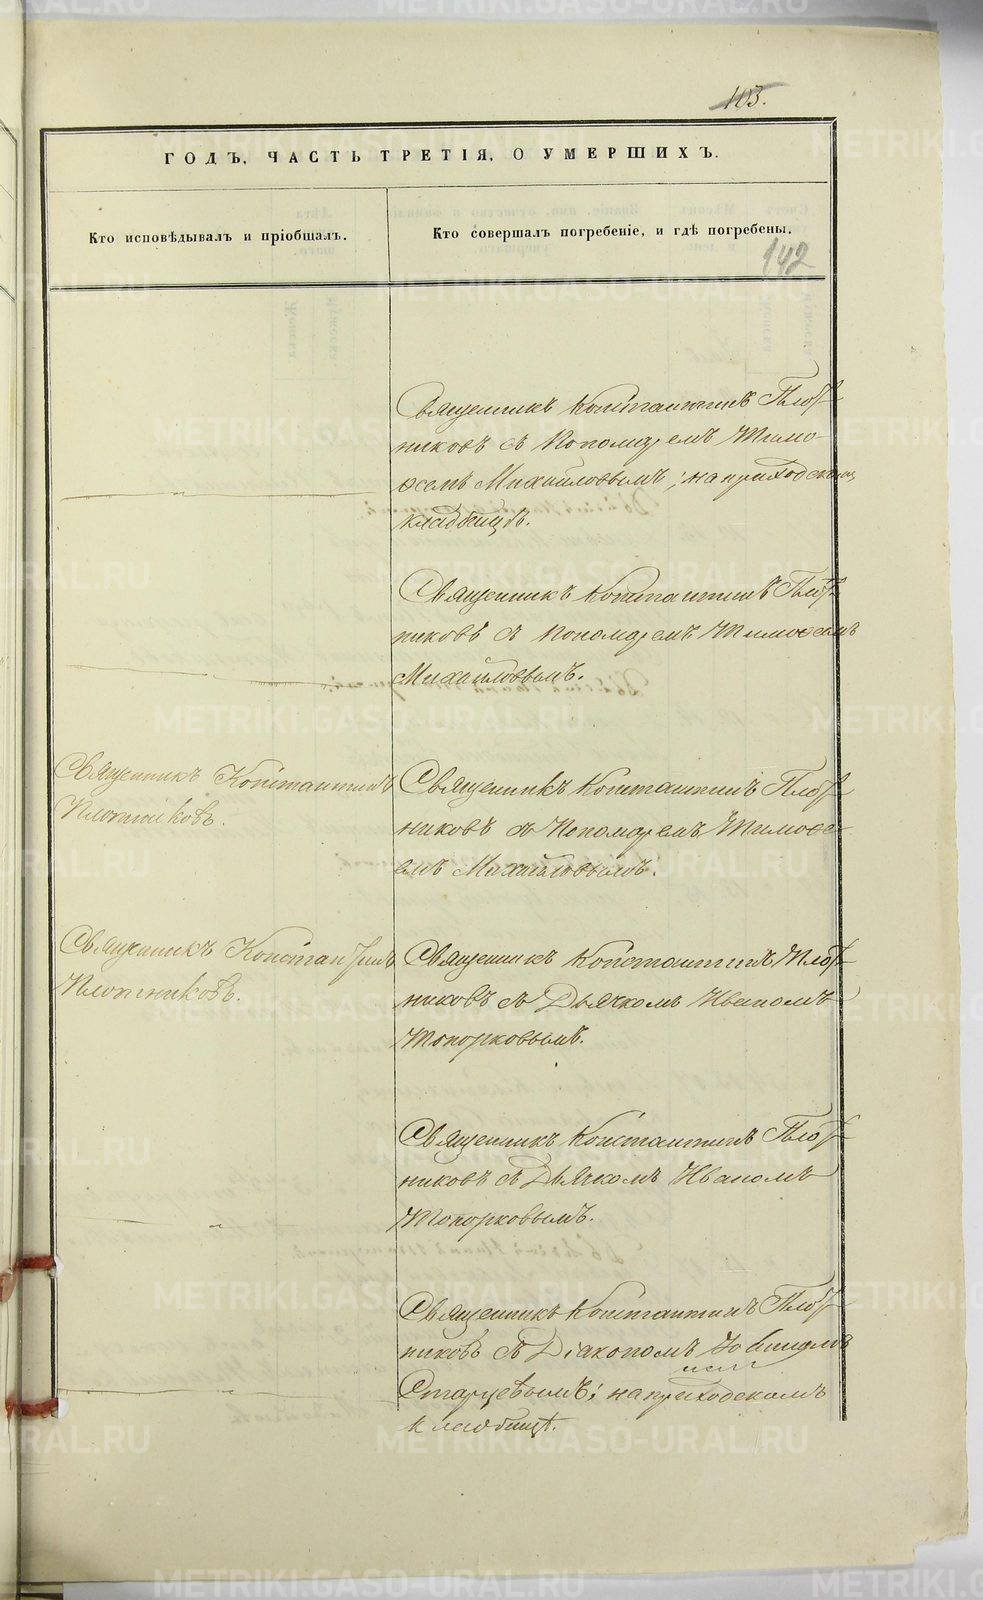 403.
ГОДЪ, ЧАСТЬ ТРЕТІЯ, О УМЕРШИХЪ.
Кто исповѣдывалъ и пріобщалъ.
Кто совершалъ погребеніе, и гдѣ погребены.
142
Священникъ Константинъ Плот-
никовъ съ Пономаремъ Тимо-
ѳеемъ Михайловымъ; на приходскомъ
кладбищѣ.
Священникъ Константинъ Плот-
никовъ съ Пономаремъ Тимоѳеемъ
Михайловымъ.
Священникъ Константинъ
Плотниковъ.
Священникъ Константинъ Плот-
никовъ съ Пономаремъ Тимоѳе-
емъ Михайловымъ.
Священникъ Константинъ
Плотниковъ.
Священникъ Константинъ Плот-
никовъ съ Дьячкомъ Иваномъ
Топорковымъ.
Священникъ Константинъ Плот-
никовъ съ Дьячкомъ Иваномъ
Топорковымъ.
Священникъ Константинъ Плот-
никовъ съ Діакономъ
Старцевымъ; на приходскомъ
кладбищѣ.
METRIKI.GASO-URAL.RU